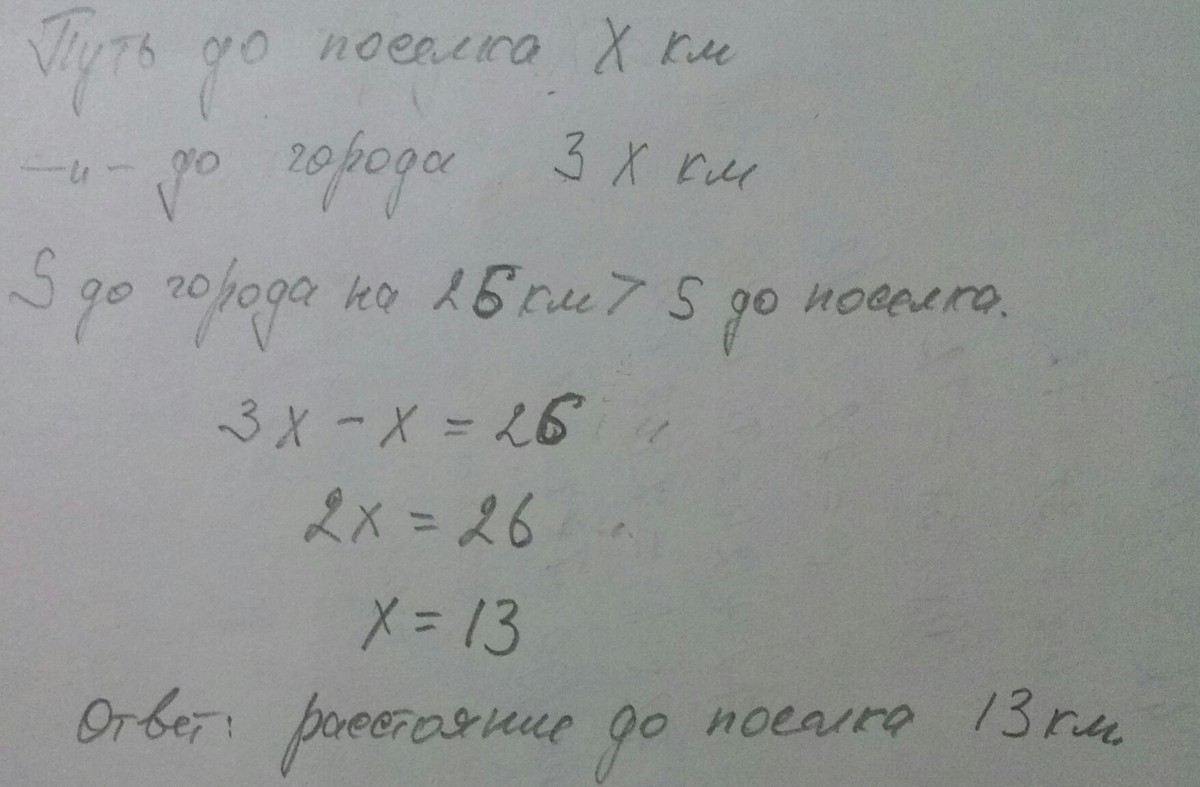 Путь до поселка X км
—"— до города 3 X км
S до города на 26 км > S до поселка.
3x - x = 26
2x = 26
x = 13
Ответ: расстояние до поселка 13 км.